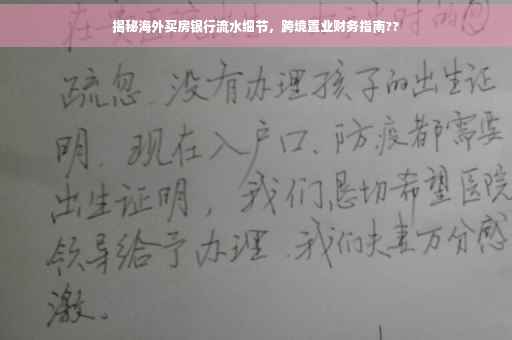 揭秘海外买房银行流水细节，跨境置业财务指南??
疏忽、没有办理孩子的出生证
明、现在入户口、防疫都需要
出生证明，我们恳切希望医院
领导给予办理、我们夫妻万分感
激。